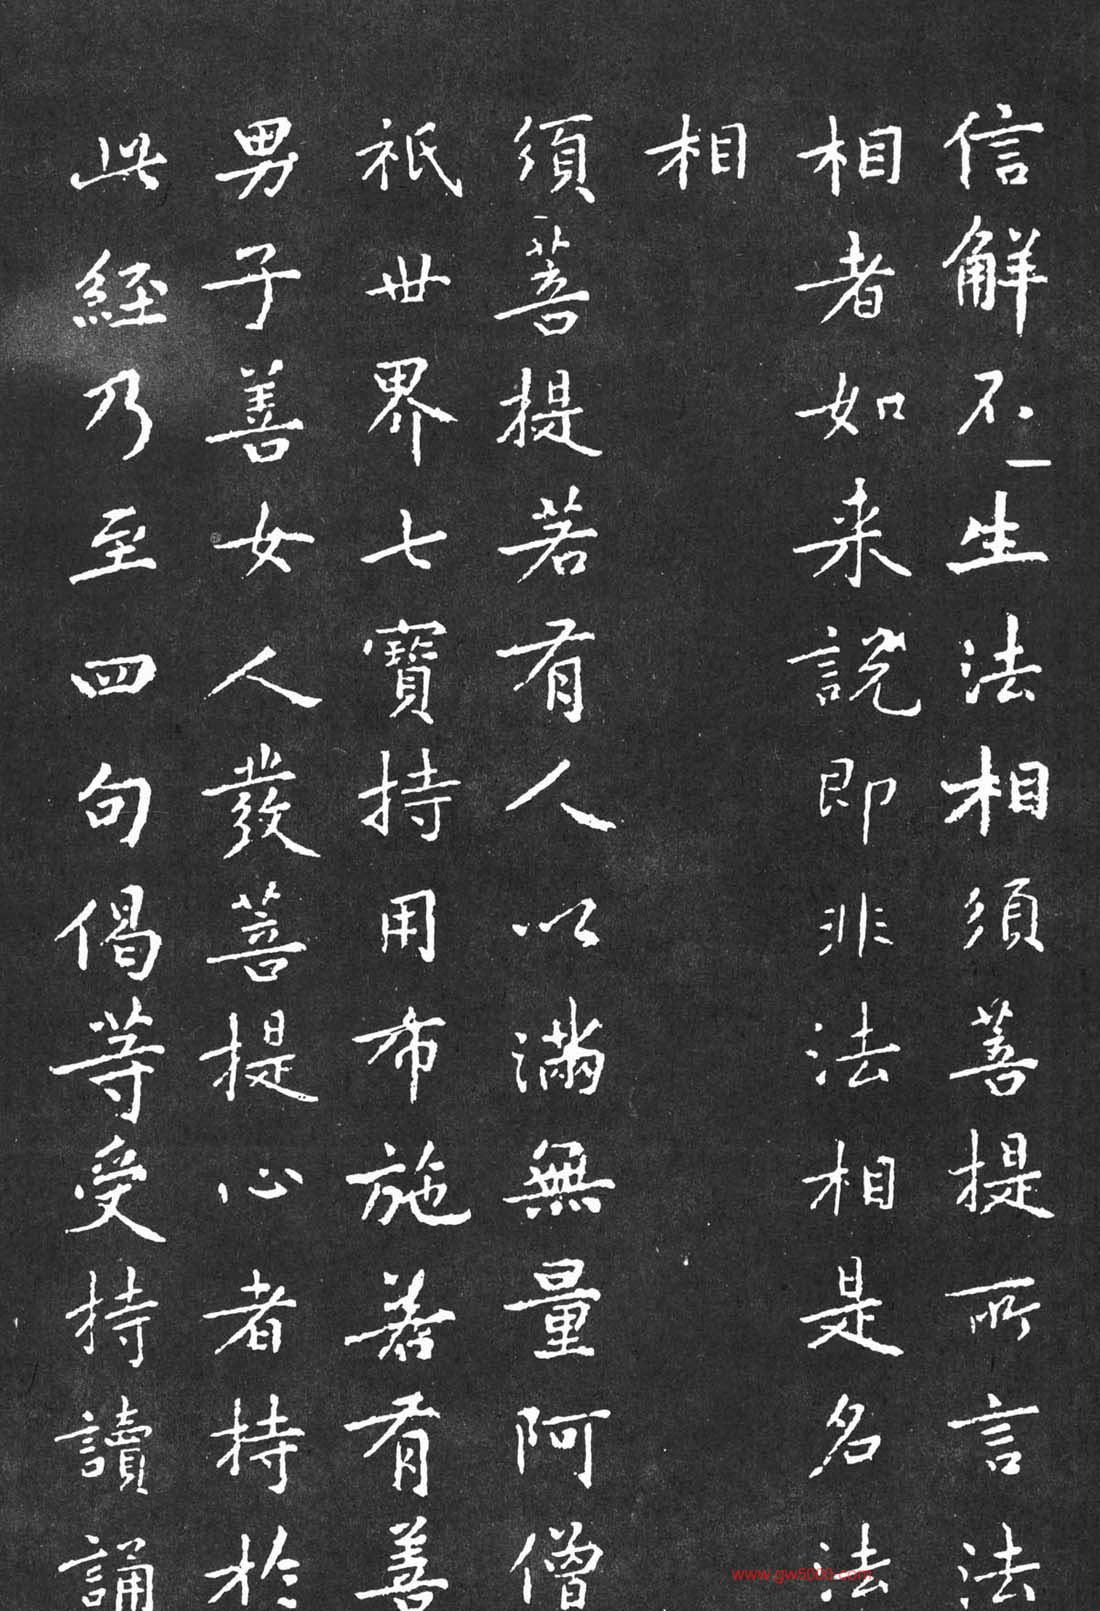 信解不生法相須菩提所言法
相者如来説即非法相是名法
相
須菩提若有人以滿無量阿僧
祇世界七寶持用布施若有善
男子善女人發菩提心者持於
此經乃至四句偈等受持讀誦
www.gw5000.com